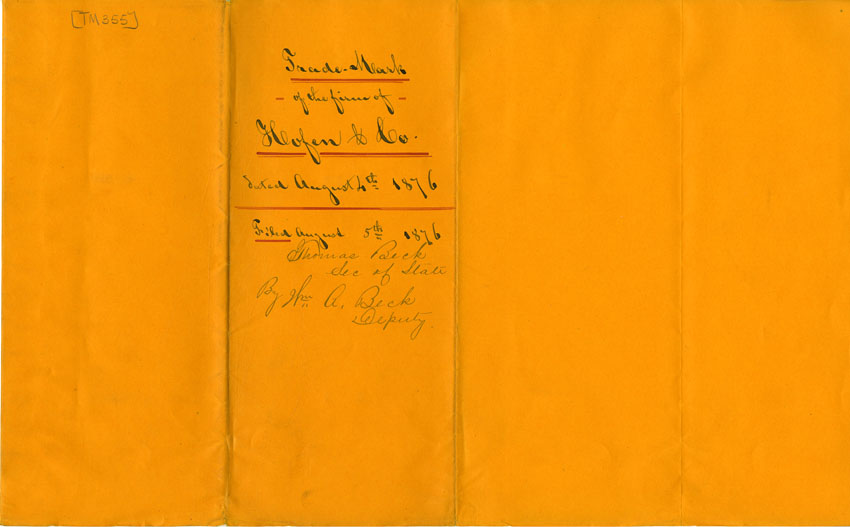 [TM355]
Trade-Mark
- of the firm of -
Hofen & Co.
dated August 4th 1876
Filed August 5th 1876
Thomas Beck
Sec of State
By Wm A. Beck
Deputy.